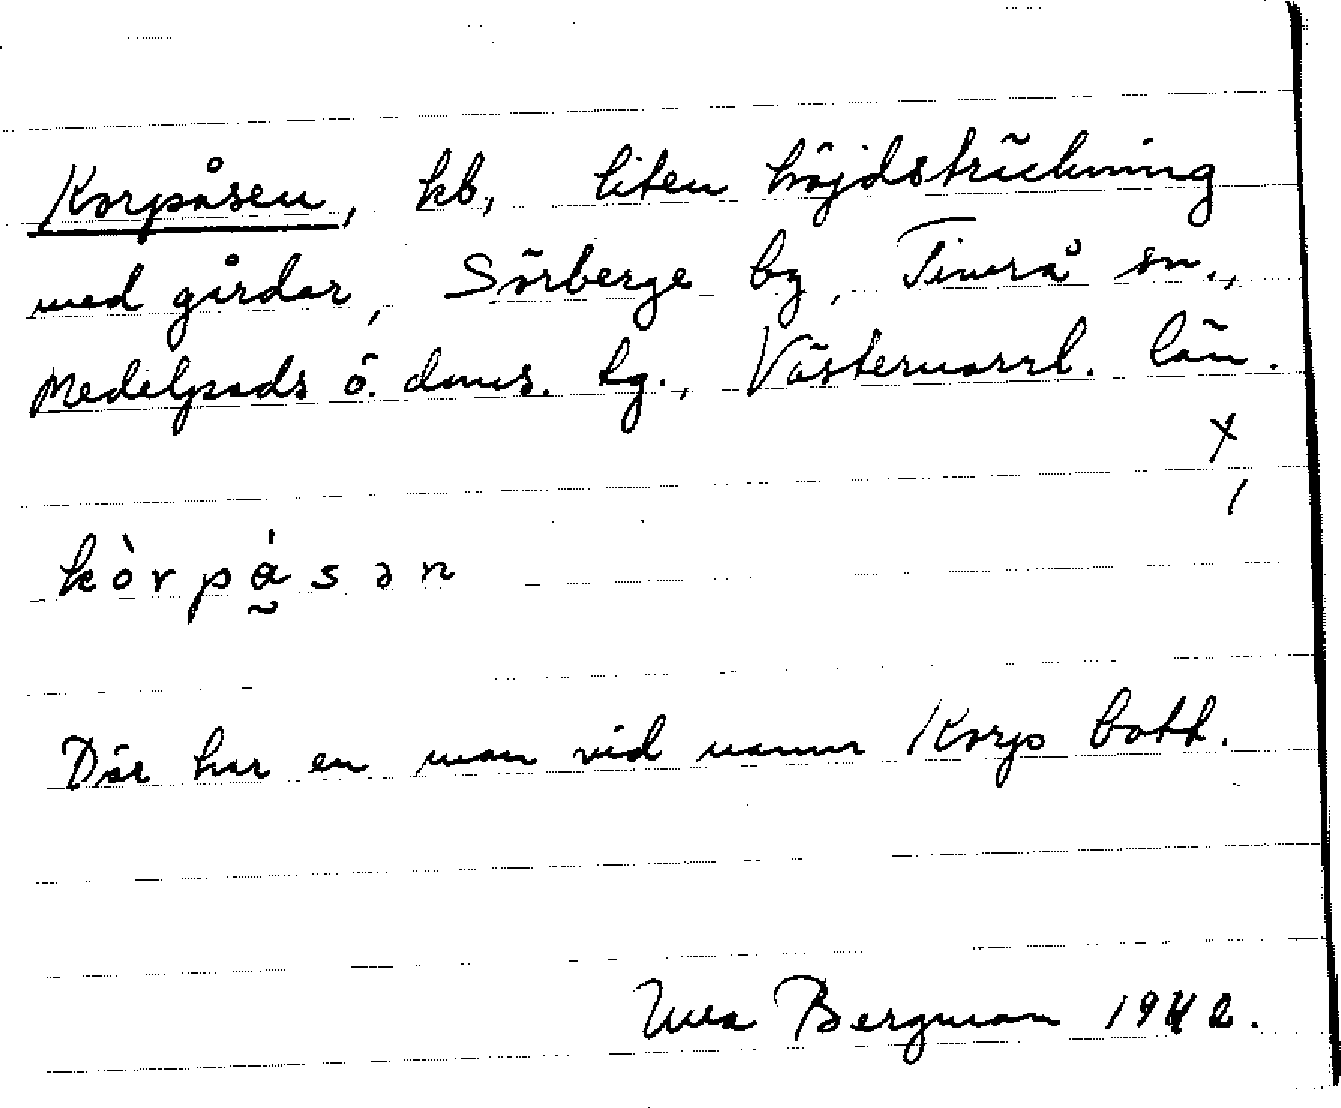 Korpåsen, kb, liten höjdsträckning
med gårdar, Sörberge by, Timrå sn.,
Medelpads ö. doms. tg., Västernorrl. län.
x
/
kòrpɑ̰́sən
Där har en man vid namn Korp bott.
Bergman 1942.